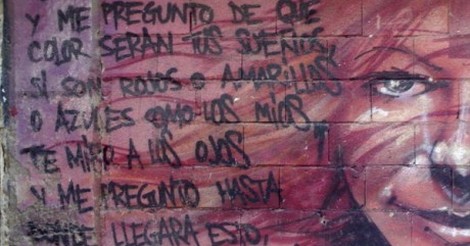 Y ME PREGUNTO DE QUE
COLOR SERAN TUS SUEÑOS,
SI SON ROJOS O AMARILLAS
O AZULES COMO LOS MIOS.
TE MIRO A LOS OJOS
Y ME PREGUNTO HASTA
LLEGARA ESTO,